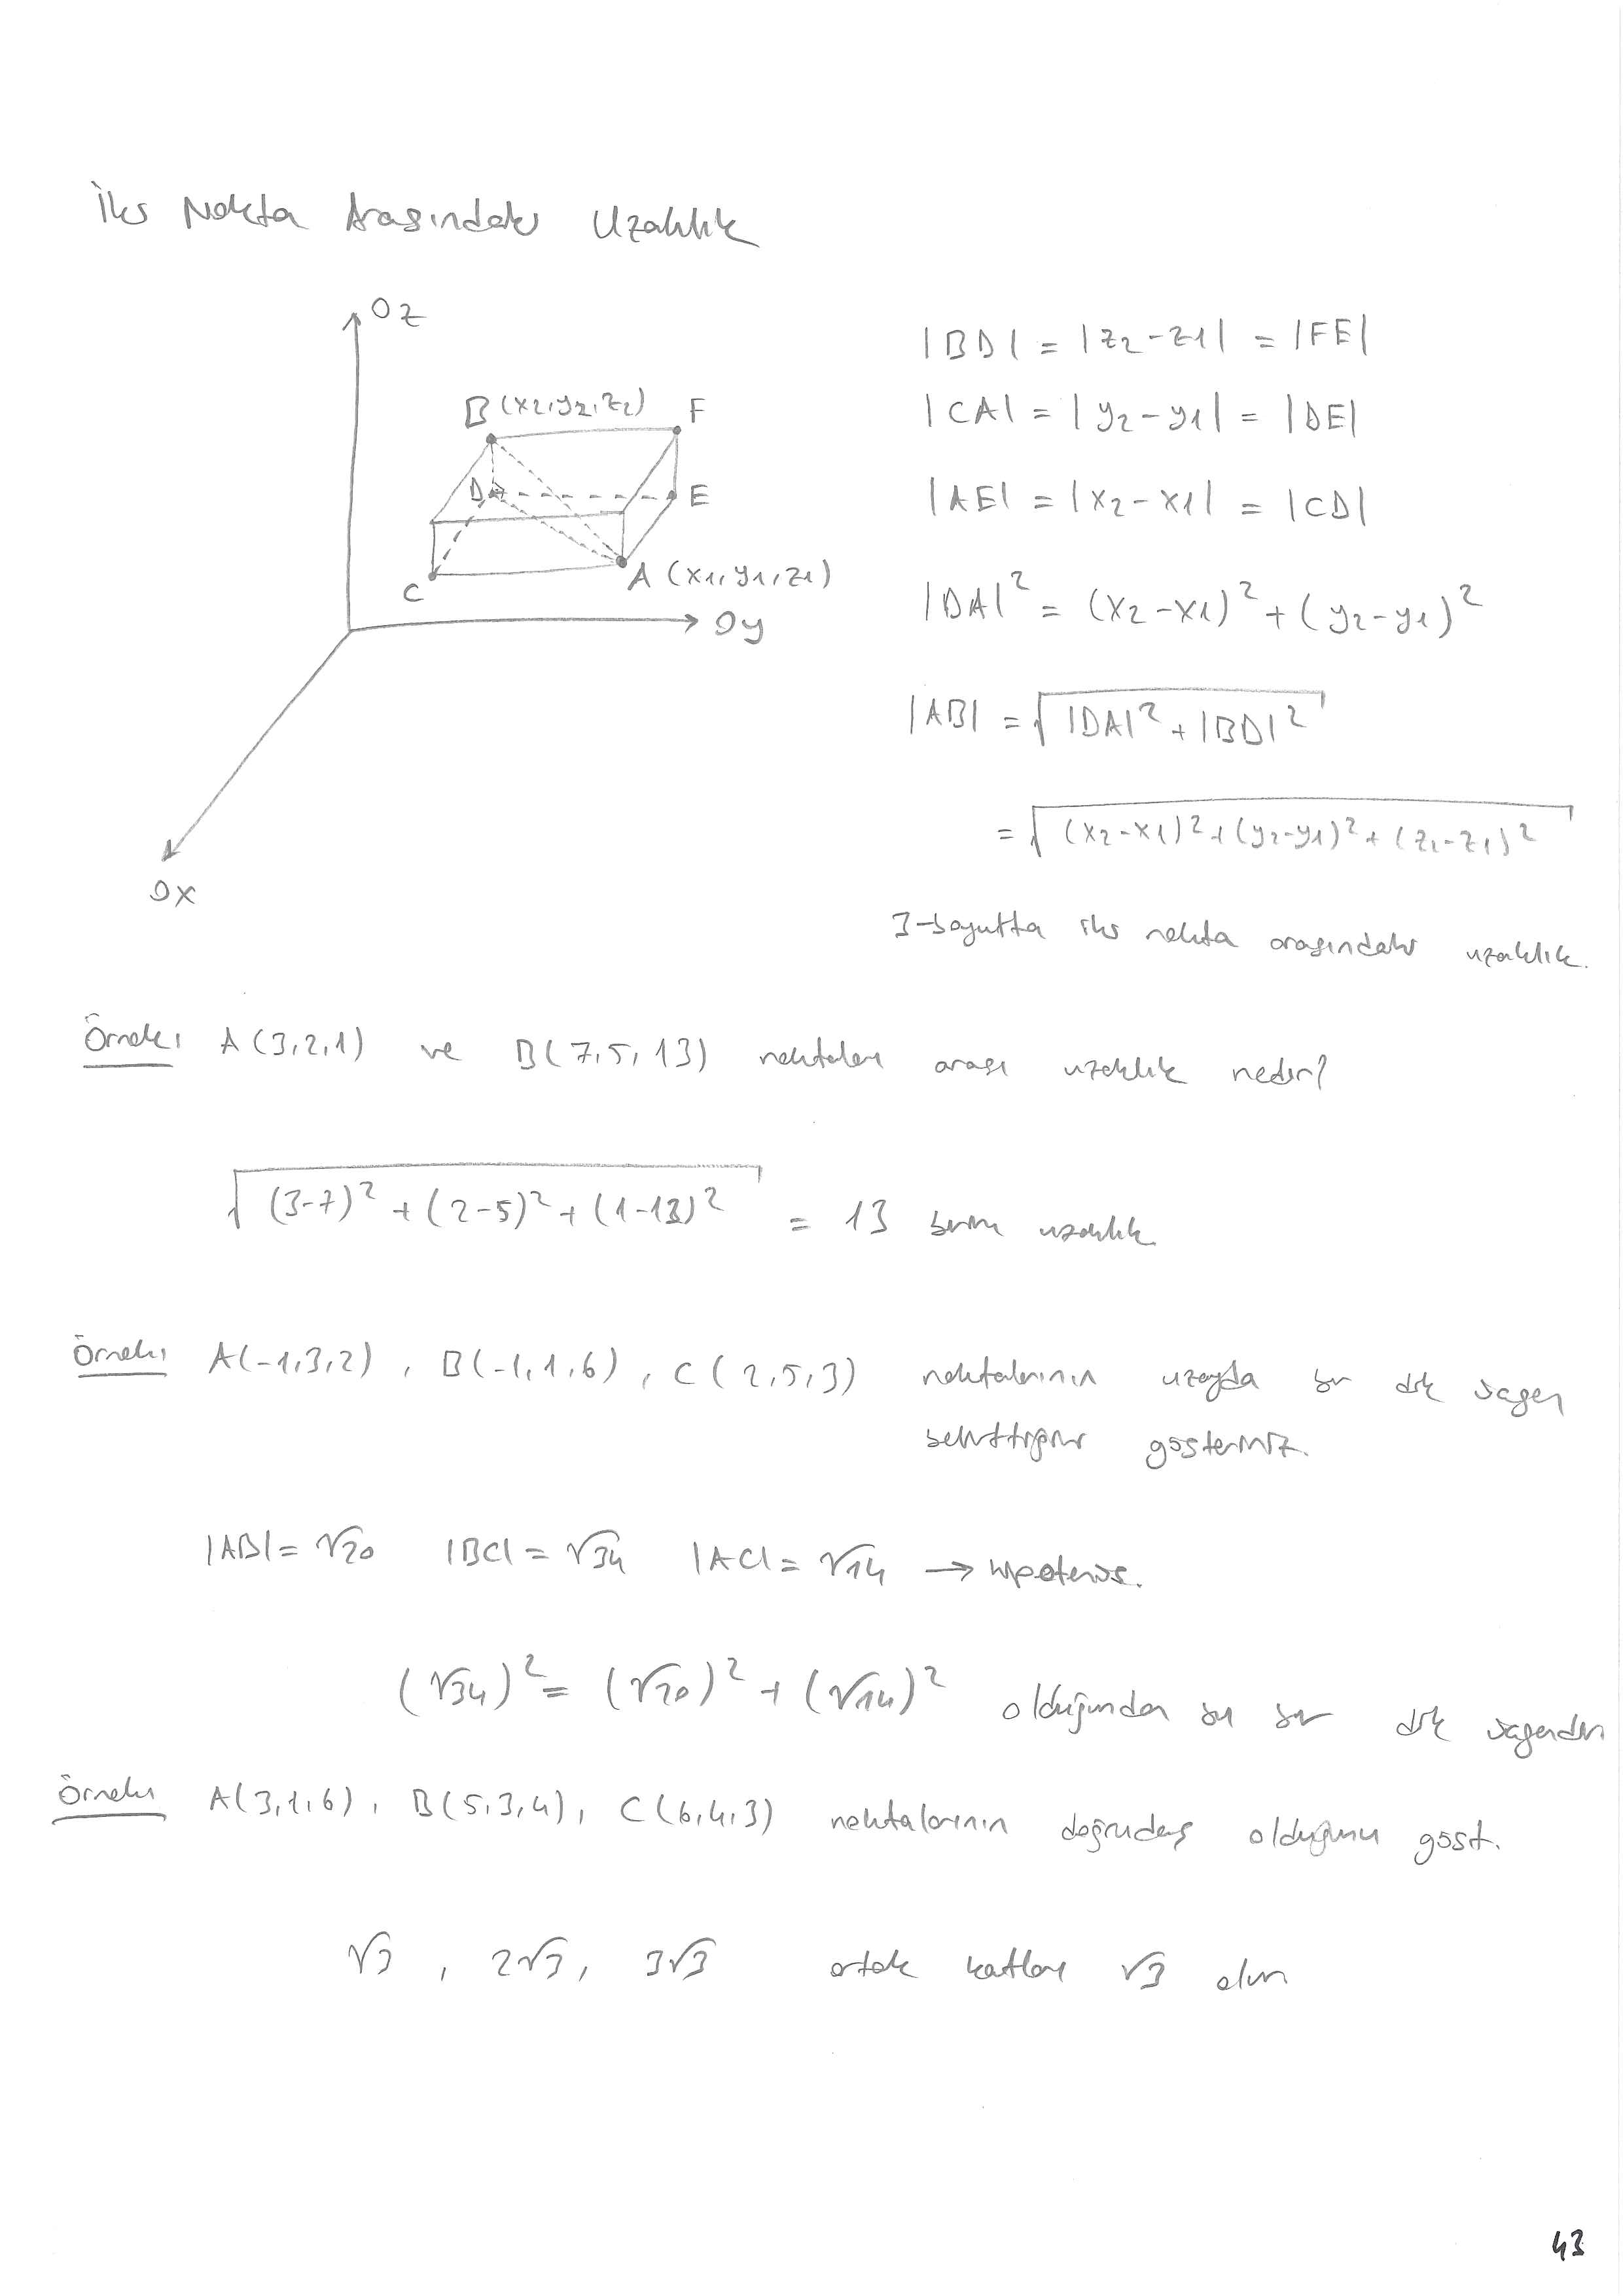 İki Nokta Arasındaki Uzaklık
Oz
B(x2,y2,z2) F
D E
C A(x1,y1,z1)
Oy
Ox
|BD| = |z2-z1| = |FE|
|CA| = |y2-y1| = |DE|
|AE| = |x2-x1| = |CD|
|DA|² = (x2-x1)² + (y2-y1)²
|AB| = √(|DA|² + |BD|²)
= √((x2-x1)² + (y2-y1)² + (z2-z1)²)
3-boyutta iki nokta arasındaki uzaklık.
Örnek: A(3,2,1) ve B(7,5,13) noktaları arası uzaklık nedir?
√((3-7)² + (2-5)² + (1-13)²) = 13 birim uzaklık
Örnek: A(-1,3,2), B(-1,1,6), C(2,5,3) noktalarının uzayda bir dik üçgen
belirttiğini gösteriniz.
|AB| = √20 |BC| = √34 |AC| = √14 → hipotenüs.
(√34)² = (√20)² + (√14)² olduğundan bu bir dik üçgendir
Örnek: A(3,1,6), B(5,3,4), C(6,4,3) noktalarının doğrudaş olduğunu göst.
√3, 2√3, 3√3 ortak katları √3 olur
43